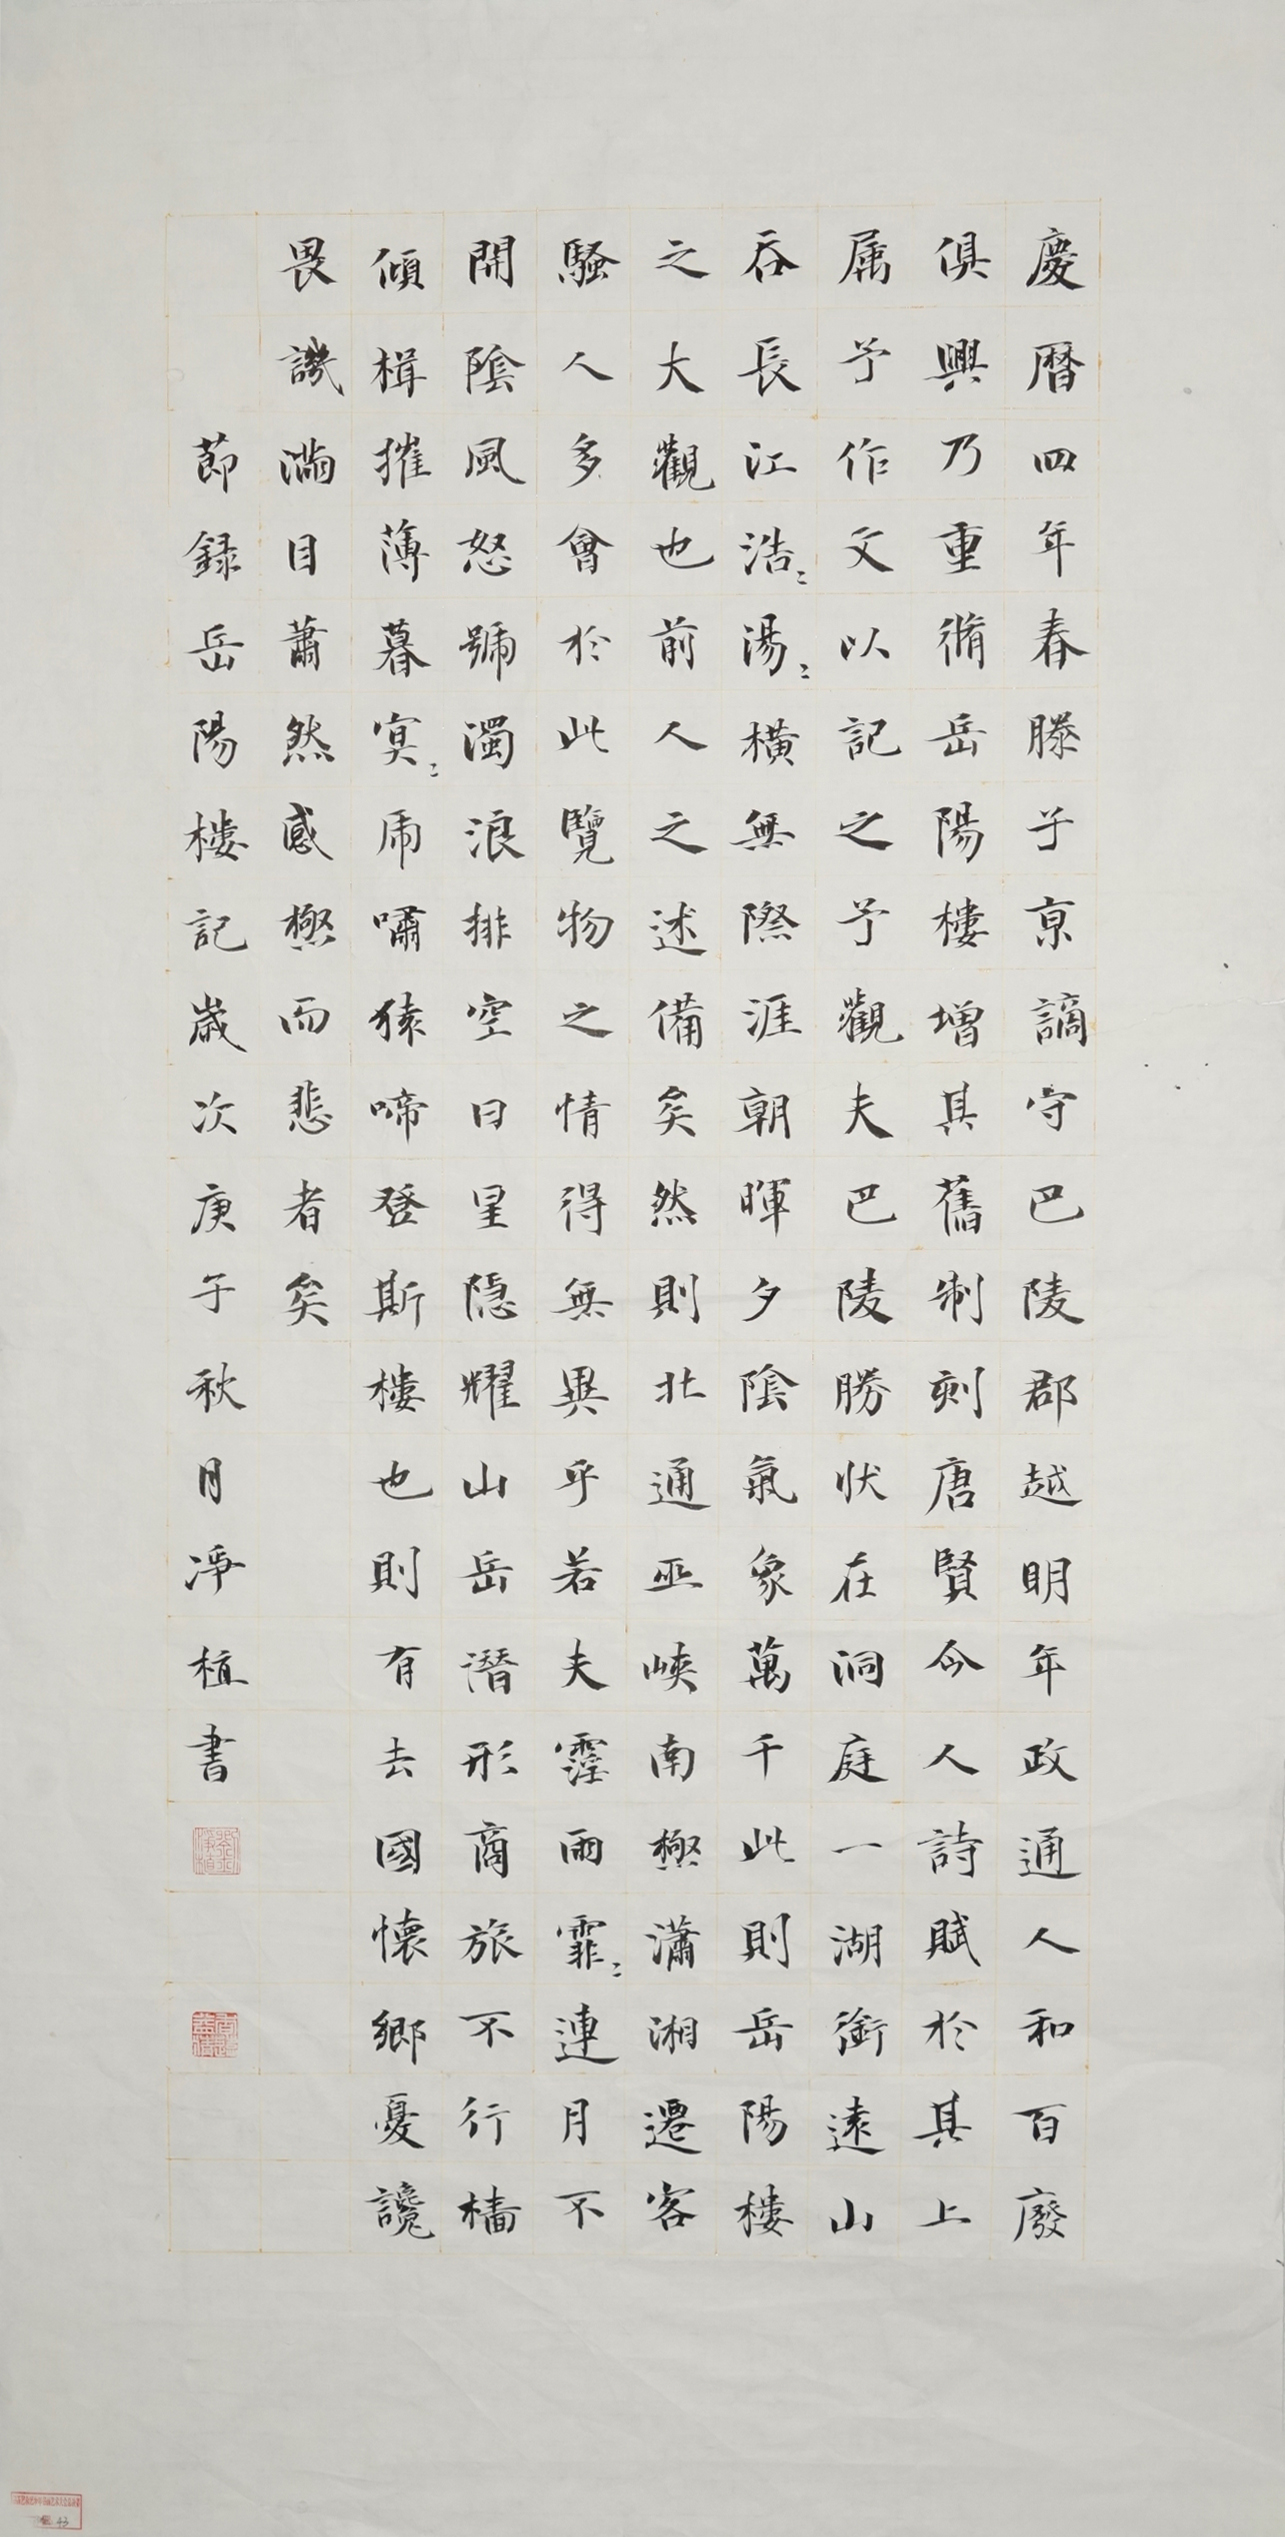 慶曆四年春滕子京謫守巴陵郡越明年政通人和百廢
俱興乃重脩岳陽樓增其舊制刻唐賢今人詩賦於其上
属予作文以記之予觀夫巴陵勝狀在洞庭一湖銜遠山
吞長江浩〻湯〻橫無際涯朝暉夕陰氣象萬千此則岳陽樓
之大觀也前人之述備矣然則北通巫峽南極瀟湘遷客
騷人多會於此覽物之情得無異乎若夫霪雨霏〻連月不
開陰風怒號濁浪排空日星隐耀山岳潛形商旅不行檣
傾楫摧薄暮冥〻虎嘯猿啼登斯樓也則有去國懷鄉憂讒
畏譏滿目蕭然感極而悲者矣
節録岳陽樓記歲次庚子秋月凈植書